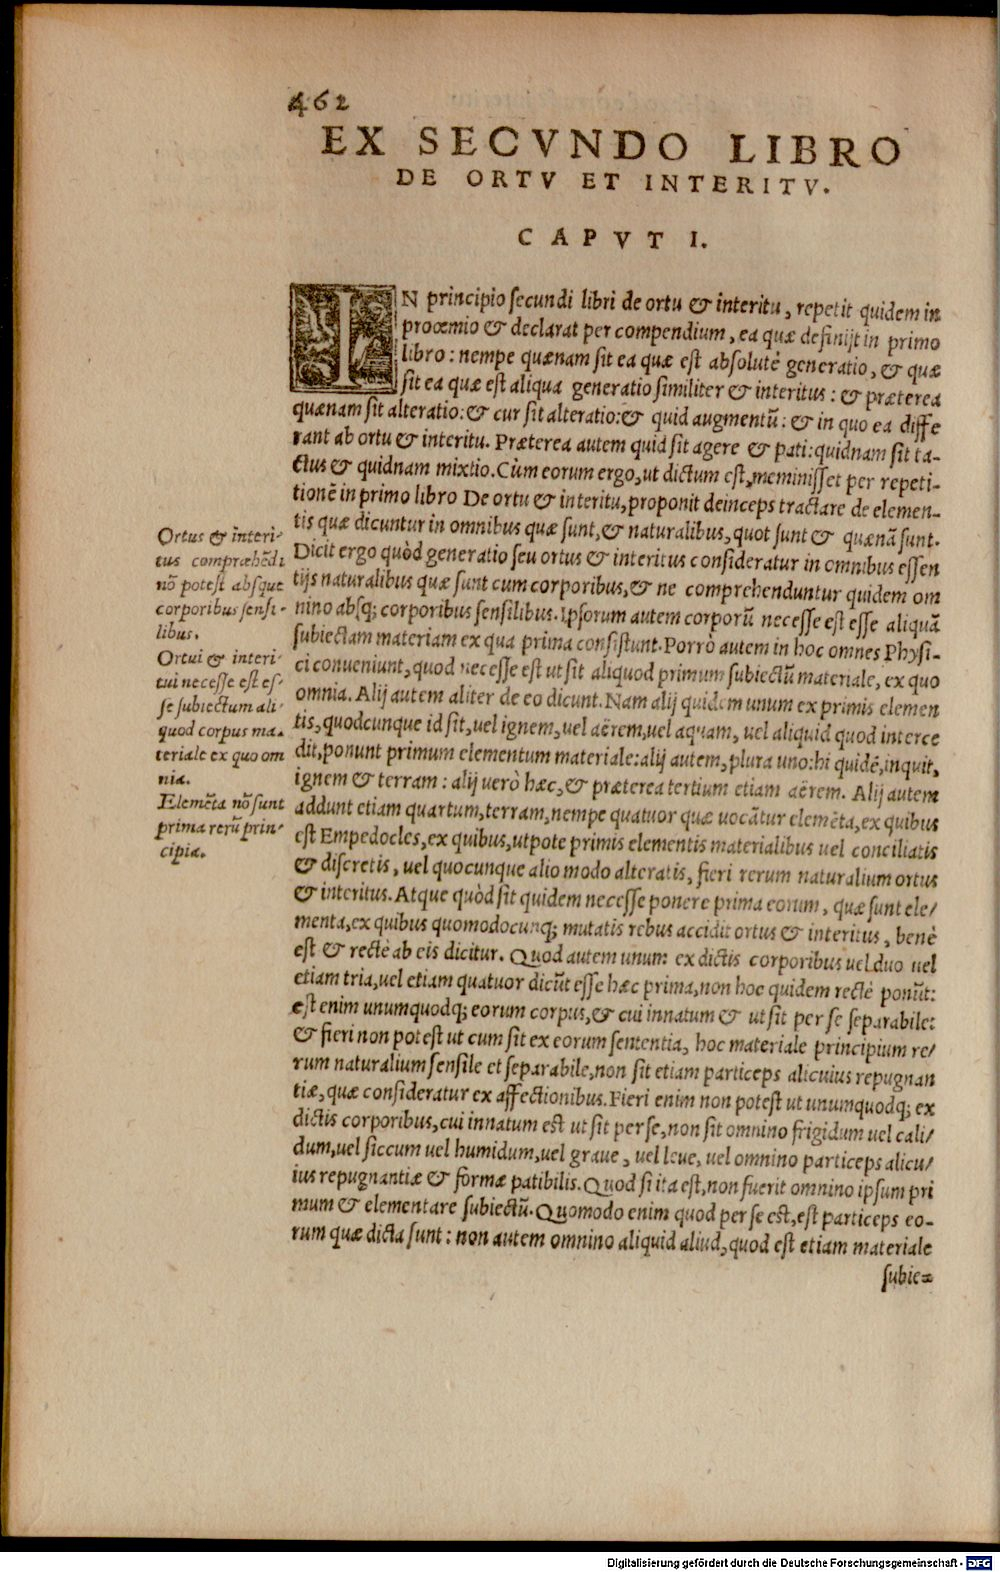 462
EX SECVNDO LIBRO
DE ORTV ET INTERITV.
CAPVT I.
IN principio secundi libri de ortu & interitu, repetit quidem in
proœmio & declarat per compendium, ea quæ definijt in primo
libro: nempe quænam sit ea quæ est absolutè generatio, & quæ
sit ea quæ est aliqua generatio similiter & interitus: & præterea
quænam sit alteratio: & cur sit alteratio: & quid augmentū: & in quo ea diffe
rant ab ortu & interitu. Præterea autem quid sit agere & pati: quidnam sit ta-
ctus & quidnam mixtio. Cùm eorum ergo, ut dictum est, meminisset per repeti-
tionē in primo libro De ortu & interitu, proponit deinceps tractare de elemen-
tis quæ dicuntur in omnibus quæ sunt, & naturalibus, quot sunt & quænā sunt.
Dicit ergo quòd generatio seu ortus & interitus consideratur in omnibus essen
tijs naturalibus quæ sunt cum corporibus, & ne comprehenduntur quidem om
nino absq; corporibus sensilibus. Ipsorum autem corporū necesse est esse aliquā
subiectam materiam ex qua prima consistunt. Porrò autem in hoc omnes Physi-
ci conueniunt, quod necesse est ut sit aliquod primum subiectū materiale, ex quo
omnia. Alij autem aliter de eo dicunt. Nam alij quidem unum ex primis elemen
tis, quodcunque id sit, uel ignem, uel aërem, uel aquam, uel aliquid quod interce
dit, ponunt primum elementum materiale: alij autem, plura uno: hi quidē, inquit,
ignem & terram: alij verò hæc, & præterea tertium etiam aërem. Alij autem
addunt etiam quartum, terram, nempe quatuor quæ uocātur elemēta, ex quibus
est Empedocles, ex quibus, utpote primis elementis materialibus uel conciliatis
& discretis, uel quocunque alio modo alteratis, fieri rerum naturalium ortus
& interitus. Atque quòd sit quidem necesse ponere prima eorum, quæ sunt ele/
menta, ex quibus quomodocunq; mutatis rebus accidit ortus & interitus, benè
est & rectè ab eis dicitur. Quod autem unum ex dictis corporibus uel duo uel
etiam tria, uel etiam quatuor dicūt esse hæc prima, non hoc quidem rectè ponūt:
est enim unumquodq; eorum corpus, & cui innatum & ut sit per se separabile:
& fieri non potest ut cum sit ex eorum sententia, hoc materiale principium re/
rum naturalium sensile et separabile, non sit etiam particeps alicuius repugnan
tiæ, quæ consideratur ex affectionibus. Fieri enim non potest ut unumquodq; ex
dictis corporibus, cui innatum est ut sit per se, non sit omnino frigidum uel cali/
dum, uel siccum uel humidum, uel graue, uel leue, uel omnino particeps alicu/
ius repugnantiæ & formæ patibilis. Quod si ita est, non fuerit omnino ipsum pri
mum & elementare subiectū. Quomodo enim quod per se est, est particeps eo-
rum quæ dicta sunt: non autem omnino aliquid aliud, quod est etiam materiale
subie=
Ortus & interi-
tus compræhēdi
nō potest absque
corporibus sensi-
libus.
Ortui & interi-
tui necesse est es-
se subiectum ali-
quod corpus ma-
teriale ex quo om
nia.
Elemēta nō sunt
prima rerū prin-
cipia.
Digitalisierung gefördert durch die Deutsche Forschungsgemeinschaft - DFG